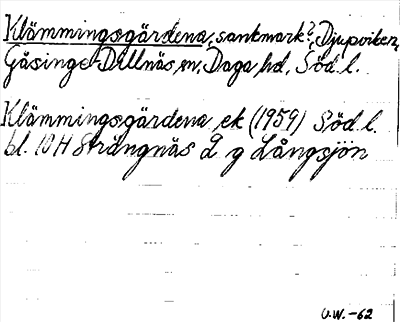 Klämmingsgärdena, sankmark?, Djupviken,
Gåsinge-Dillnäs sn, Daga hd, Söd l.
Klämmingsgärdena ek (1959) Söd l.
bl. 10H Strängnäs 2 g Långsjön
U.W.-62